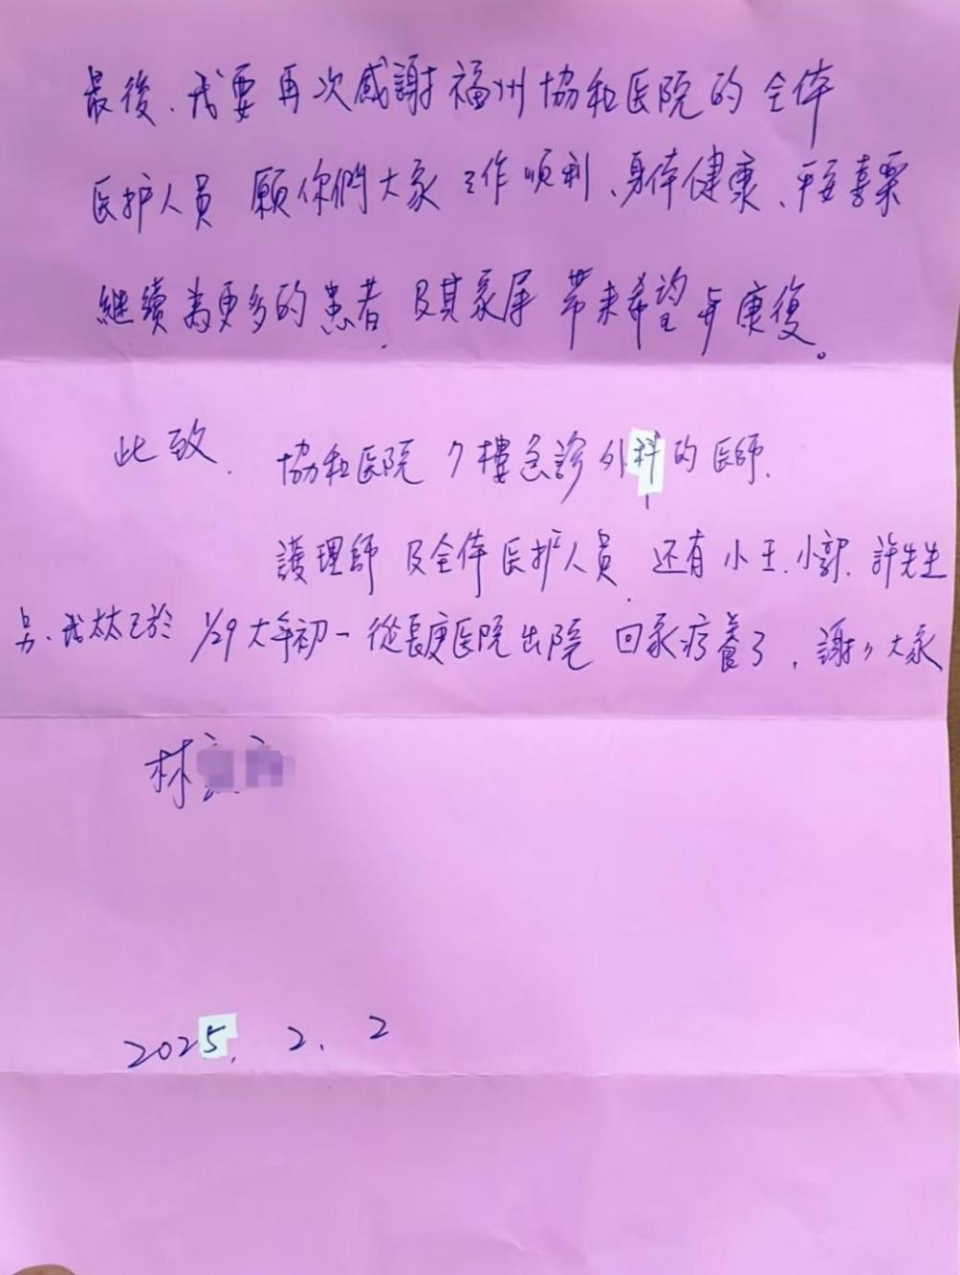 最後、我要再次感謝福州協和医院的全体
医护人員 願你們大家工作順利、身体健康、平安喜樂
継續為更多的患者 及其家属 带来希望与康復。
此致. 協和医院 7樓急診外科的医師.
護理師 及全体医护人員. 还有小王.小郭. 許先生
另.我太太已於 1/29 大年初一從長庚医院出院 回家疗養了,謝々大家
林
2025. 2. 2